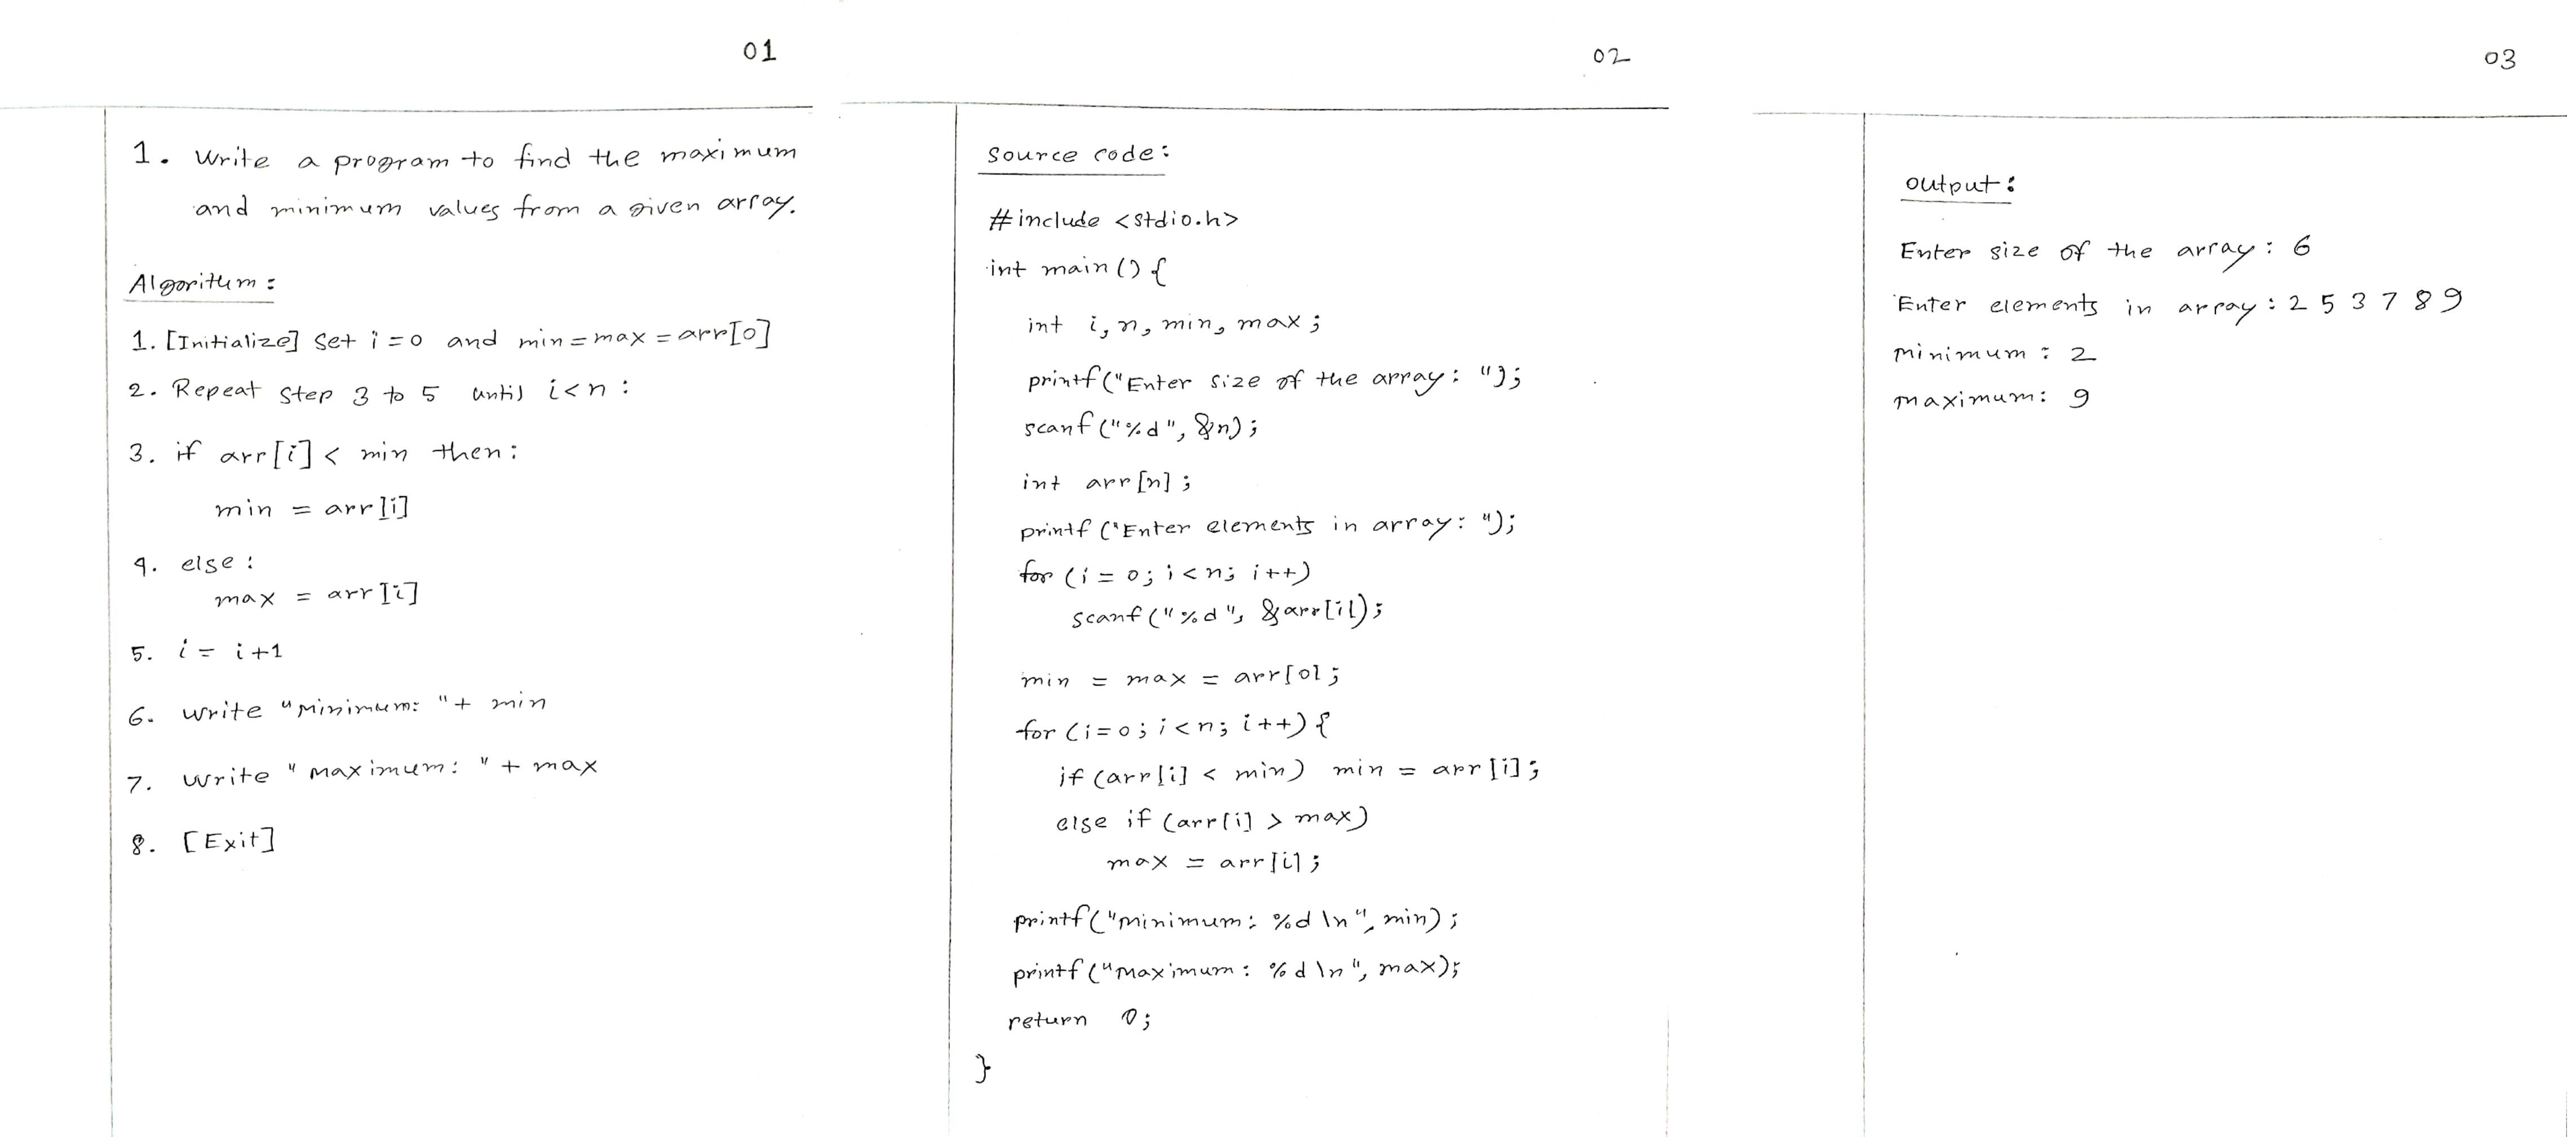 01
1. Write a program to find the maximum
and minimum values from a given array.
Algorithm:
1. [Initialize] Set i = 0 and min = max = arr[0]
2. Repeat step 3 to 5 until i < n :
3. if arr[i] < min then:
min = arr[i]
4. else :
max = arr[i]
5. i = i+1
6. write "Minimum: "+ min
7. write "Maximum: " + max
8. [Exit]
02
Source code:
#include <stdio.h>
int main() {
int i, n, min, max;
printf("Enter size of the array: ");
scanf("%d", &n);
int arr[n];
printf("Enter elements in array: ");
for (i = 0; i < n; i++)
scanf("%d", &arr[i]);
min = max = arr[0];
for (i=0; i<n; i++) {
if (arr[i] < min) min = arr[i];
else if (arr[i] > max)
max = arr[i];
printf("Minimum: %d \n", min);
printf("Maximum: %d \n", max);
return 0;
}
03
Output:
Enter size of the array: 6
Enter elements in array: 2 5 3 7 8 9
Minimum: 2
Maximum: 9